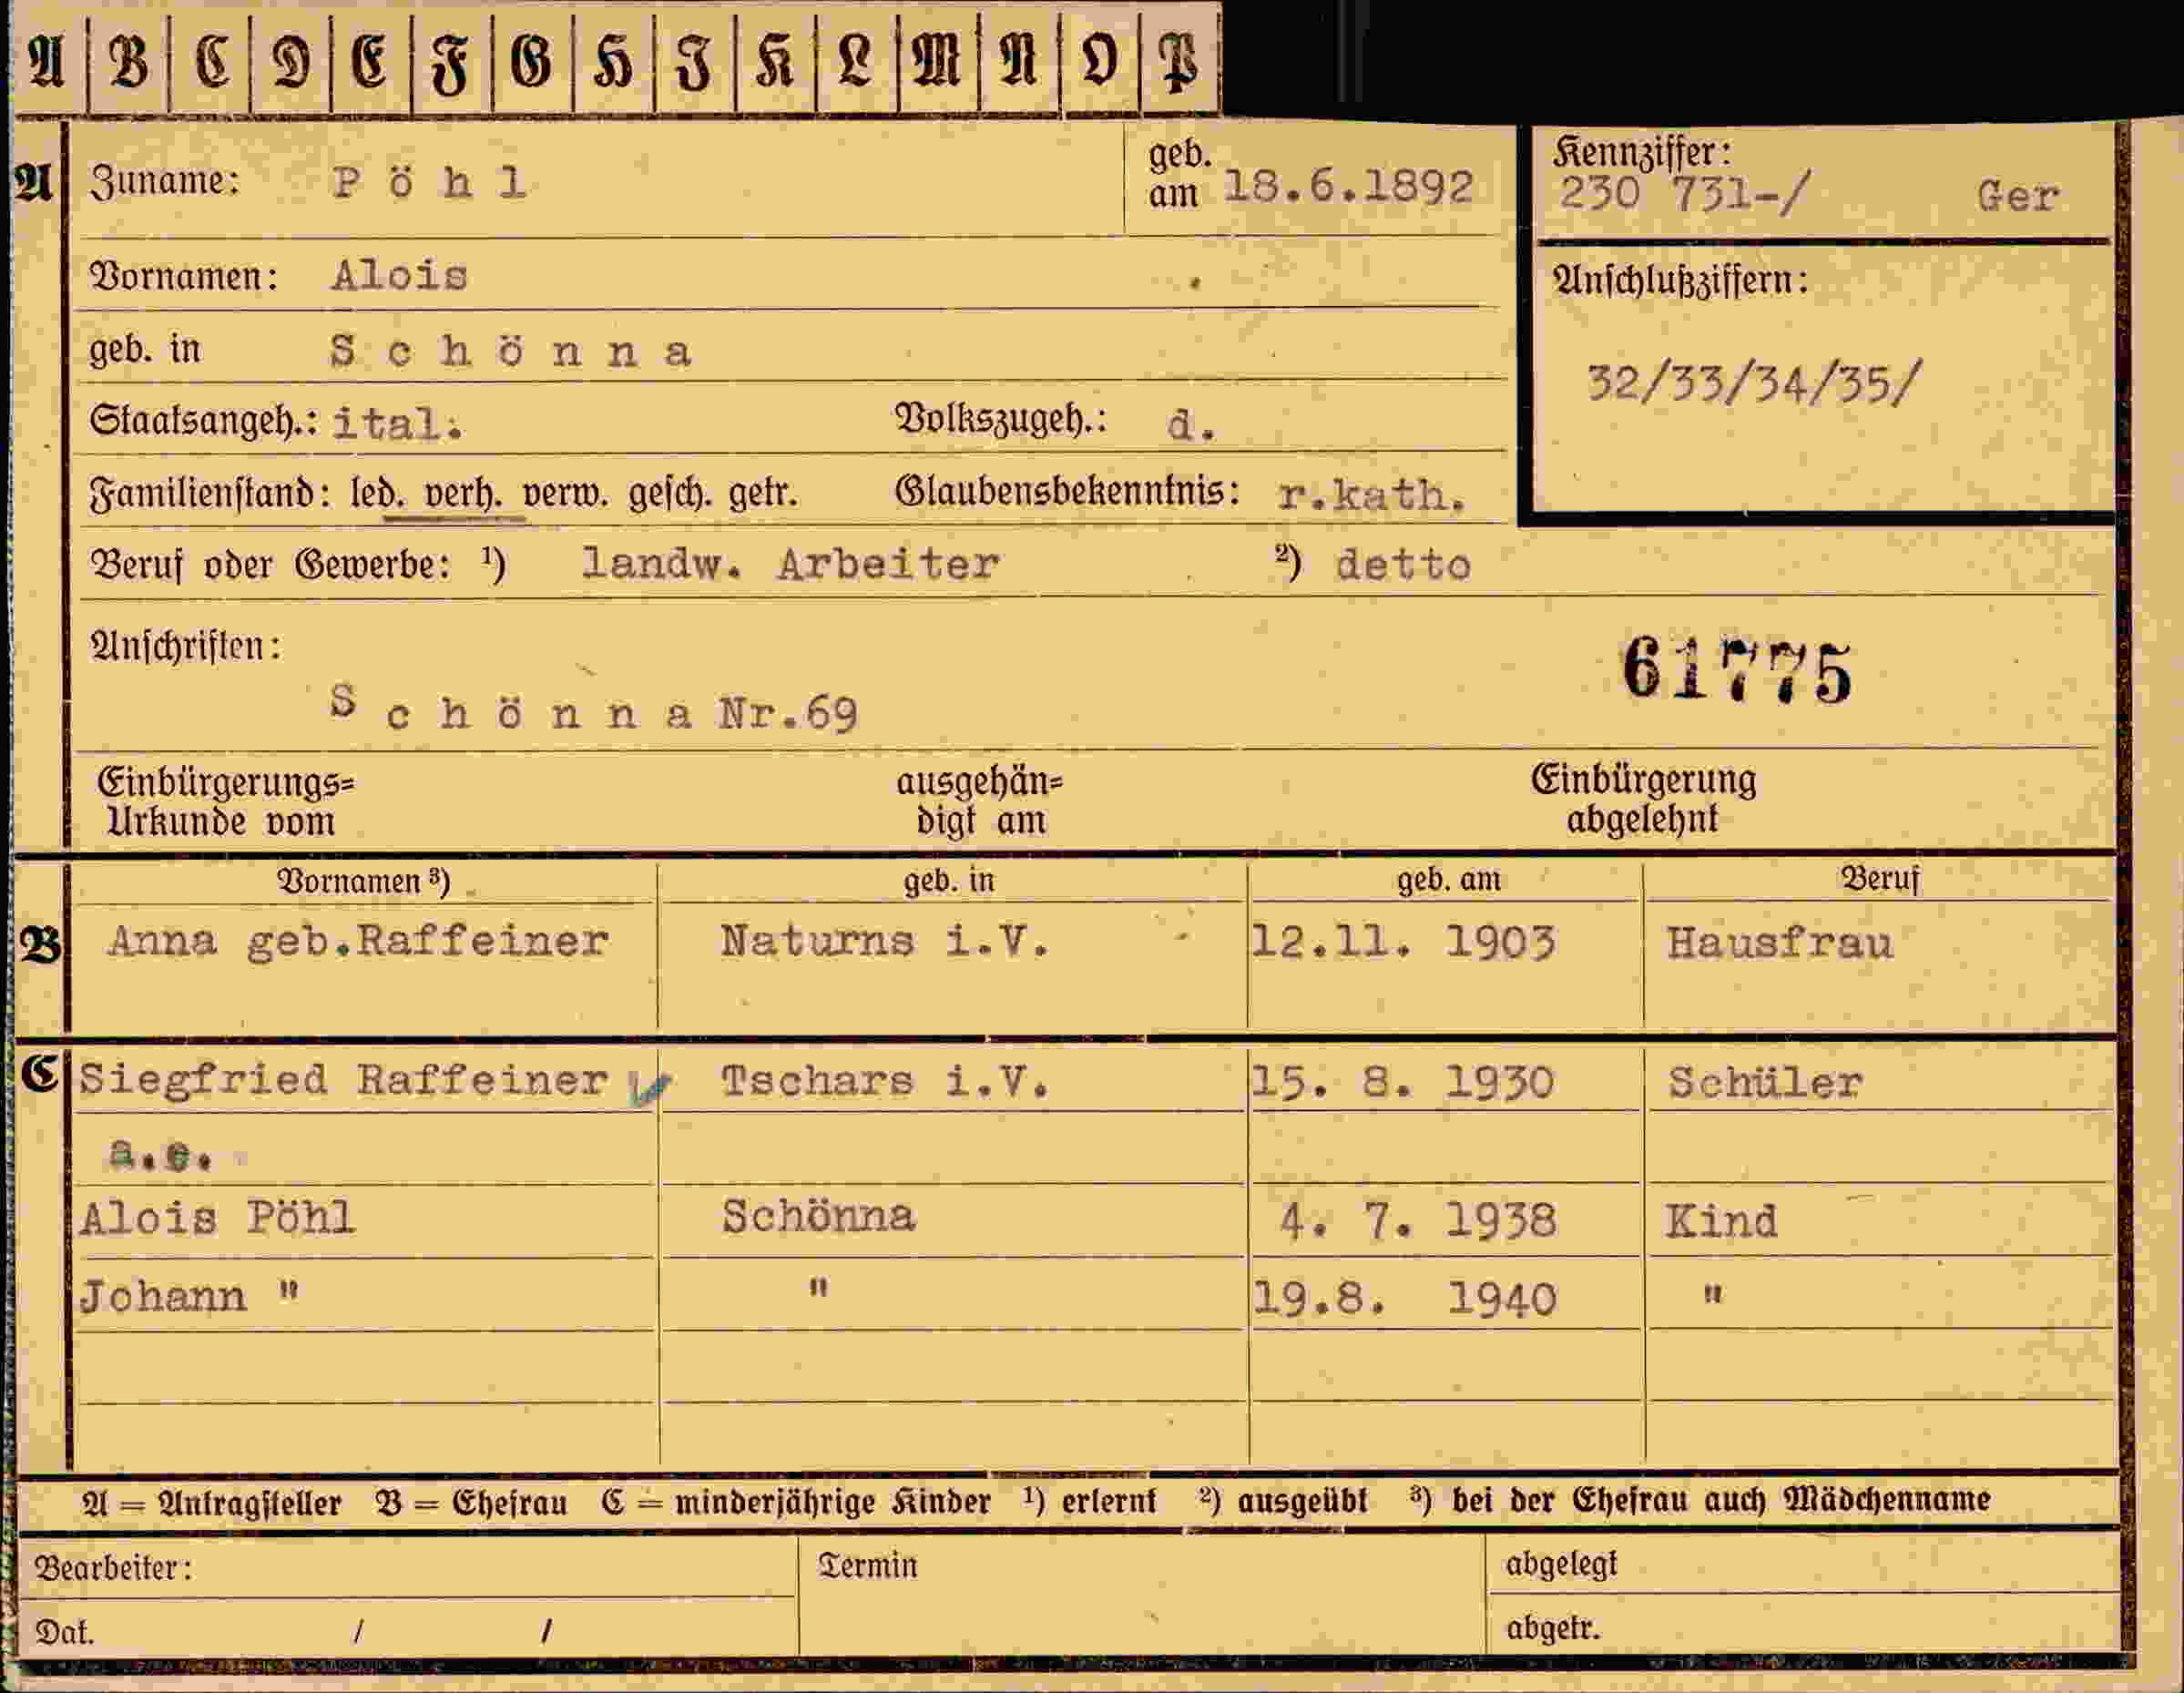 A B C D E F G H J K L M N O P
A Zuname: Pöhl geb. am 18.6.1892
Kennziffer:
230 731-/ Ger
Vornamen: Alois
Anschlußziffern:
geb. in Schönna
32/33/34/35/
Staatsangeh.: ital. Volkszugeh.: d.
Familienstand: led. verh. verw. gesch. getr. Glaubensbekenntnis: r.kath.
Beruf oder Gewerbe: ¹) landw. Arbeiter ²) detto
Anschriften:
61775
Schönna Nr.69
Einbürgerungs= ausgehän= Einbürgerung
Urkunde vom digt am abgelehnt
Vornamen ³) geb. in geb. am Beruf
B Anna geb.Raffeiner Naturns i.V. 12.11. 1903 Hausfrau
C Siegfried Raffeiner Tschars i.V. 15. 8. 1930 Schüler
a.e.
Alois Pöhl Schönna 4. 7. 1938 Kind
Johann " " 19.8. 1940 "
A = Antragsteller B = Ehefrau C = minderjährige Kinder ¹) erlernt ²) ausgeübt ³) bei der Ehefrau auch Mädchenname
Bearbeiter: Termin abgelegt
Dat. / / abgetr.